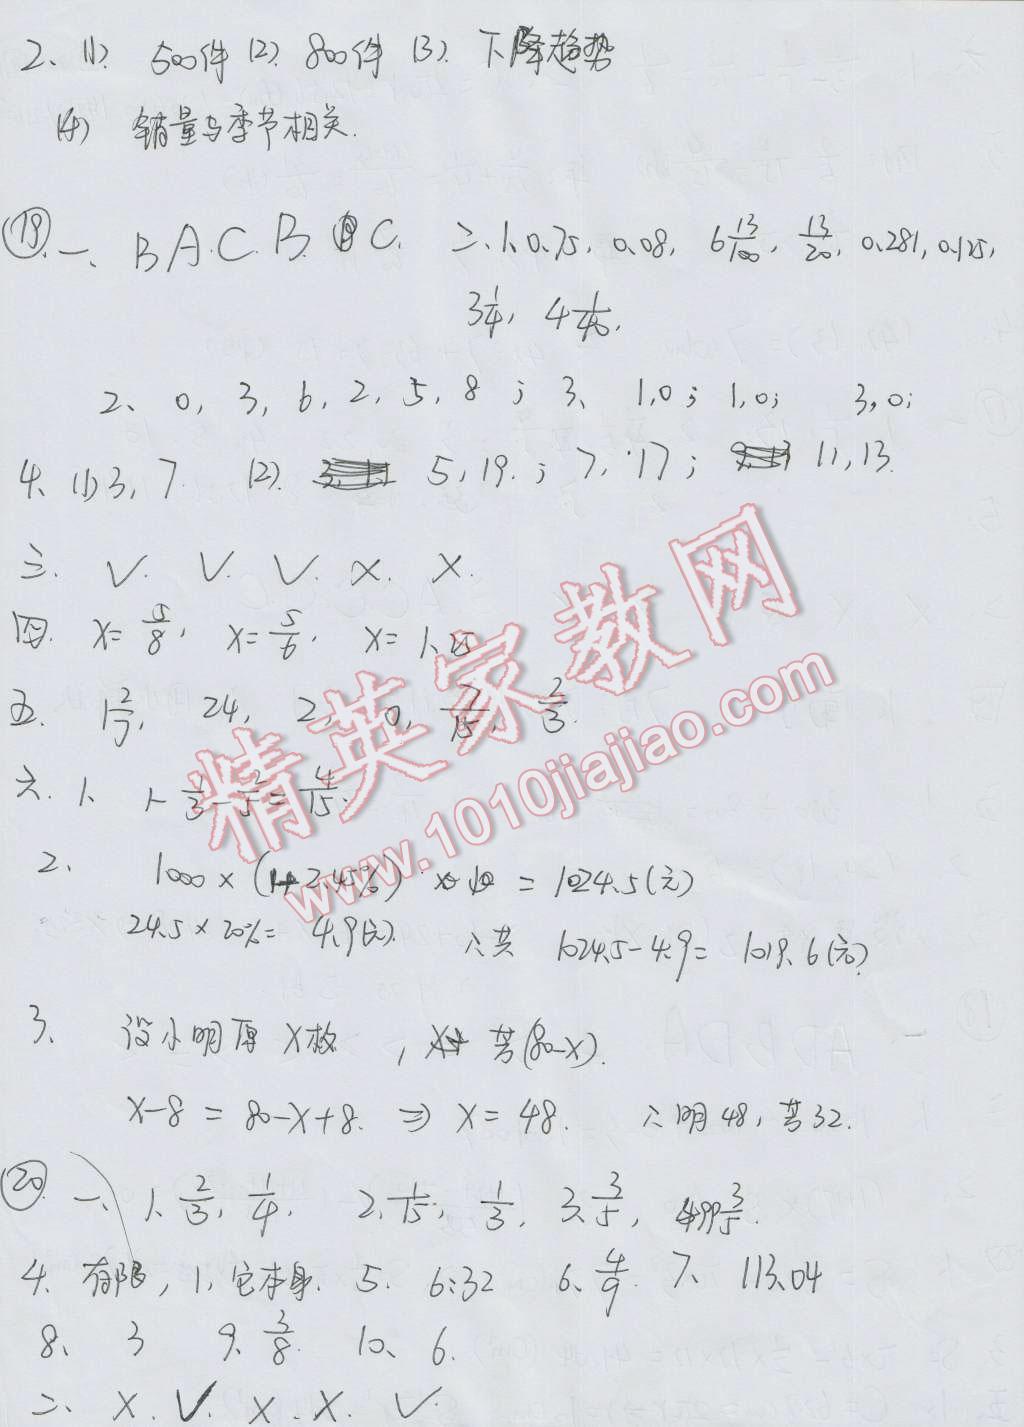 2、(1)、500件 (2)、800件 (3)、下降趋势
(4) 销量与季节相关.
⑲ 一、B A.C.B. C. 二.1、0.75, 0.08, 6 13/100, 13/20, 0.281, 0.125,
3 1/4, 4 1/40.
2、0, 3, 6, 2, 5, 8 ; 3、1,0 ; 1,0; 3,0;
4、(1)3, 7 (2). 5, 19. ; 7, 17 ; 11, 13.
三. √. √. √. ×. ×.
四. x= 5/8, x= 5/6, x= 1.25
五. 24, 2, 0, 7/15, 2/3.
六. 1、1- 1/3 - 2/5 = 4/15.
2、1000×(1+2.45%) = 1024.5(元)
24.5×20%= 4.9(元). ∴共 1024.5-4.9= 1019.6(元)
3、设小明原x枚, 芳(80-x).
x-8 = 80-x+8. ⇒ x=48. ∴明48, 芳32.
⑳ 一、1、2/3, 1/4. 2、1/15, 1/3, 3、3/5, 499 3/5.
4、有限, 1, 它本身. 5. 6:32 6、4/9. 7、113.04
8、3 9、3/8. 10、6.
二、×. √. ×. ×. √.
精英家教网
www.1010jiajiao.com